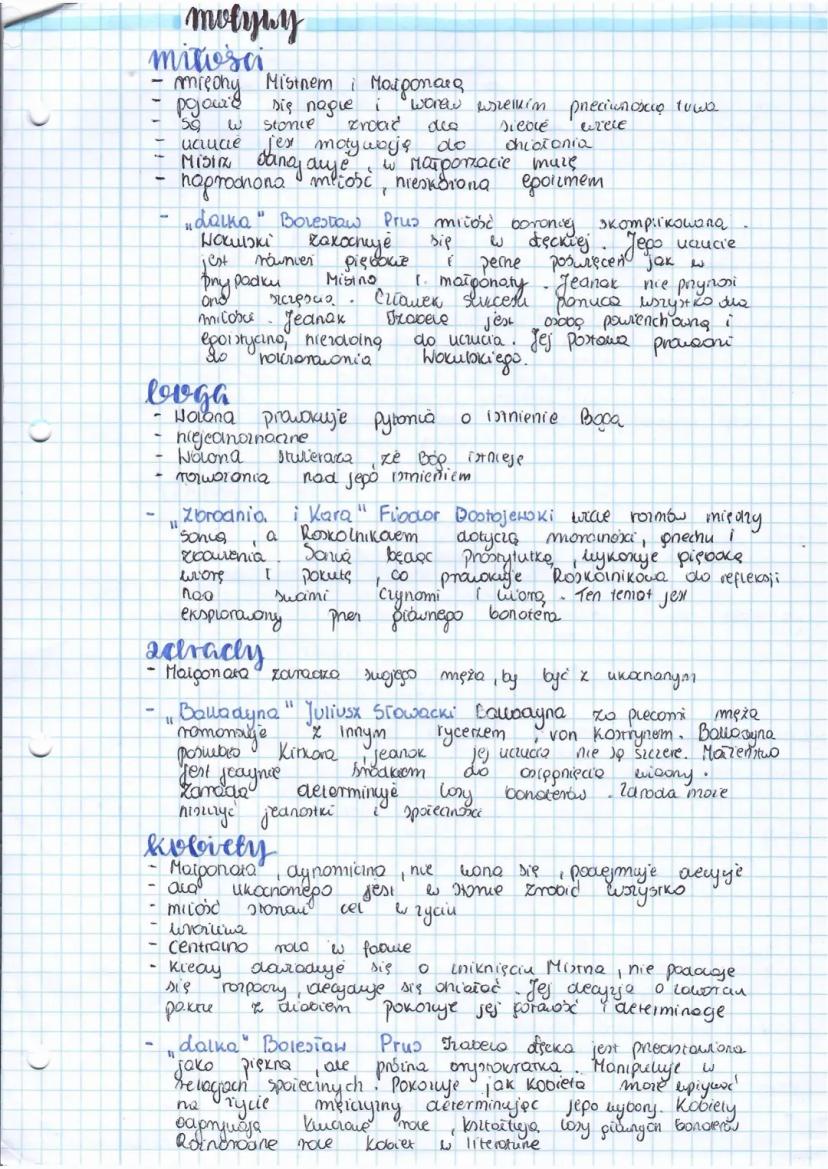 motywy
miłości
- między Mistrzem i Małgorzatą
- pojawia się nagle i wbrew wszelkim przeciwnością trwa
- są w stanie zrobić dla siebie wiele
- uczucie jest motywacją do działania
- Mistrz odnajduje, w Małgorzacie muzę
- nagrodzona miłość, nieskażona egoizmem
- „Lalka" Bolesław Prus miłość bardziej skomplikowana.
Wokulski zakochuje się w Łęckiej. Jego uczucie
jest również głębokie i pełne poświęceń jak w
przypadku Mistrza i małgorzaty. Jednak nie przynosi
ono szczęścia. Człowiek sukcesu porzuca wszystko dla
miłości. Jednak Izabela jest osobą powierzchowną i
egoistyczną, niezdolną do uczucia. Jej postawa prowadzi
do rozczarowania Wokulskiego.
boga
- Woland prowokuje pytania o istnienie Boga
- niejednoznaczne
- Woland stwierdza, że Bóg istnieje
- rozważania nad jego istnieniem
- „Zbrodnia i Kara" Fiodor Dostojewski wiele rozmów między
Sonią, a Raskolnikowem dotyczą moralności, grzechu i
zbawienia. Sonia będąc prostytutką, wykazuje głęboką
wiarę i pokutę, co prowokuje Raskolnikowa do refleksji
nad swoimi czynami i wiarą. Ten temat jest
eksplorowany przez głównego bohatera
zdrady
- Małgorzata zdradza swojego męża, by być z ukochanym
- „Balladyna" Juliusz Słowacki Balladyna za plecami męża
romansuje z innym rycerzem, von Kostrynem. Balladyna
poślubia Kirkora, jednak jej uczucia nie są szczere. Małżeństwo
jest jedynie środkiem do osiągnięcia władzy.
Zdrada determinuje losy bohaterów. Zdrada może
niszczyć jednostki i społeczności
kobiety
- Małgorzata, dynamiczna, nie waha się, podejmuje decyzje
- dla ukochanego jest w stanie zrobić wszystko
- miłość stanowi cel w życiu
- wrażliwa
- centralna rola w fabule
- kiedy dowiaduje się o zniknięciu Mistrza, nie poddaje
się rozpaczy, decyduje się działać. Jej decyzja o zawarciu
paktu z diabłem pokazuje jej odwagę i determinację
- „Lalka" Bolesław Prus Izabela Łęcka jest przedstawiona
jako piękna, ale próżna arystokratka. Manipuluje w
relacjach społecznych. Pokazuje jak kobieta może wpływać
na życie mężczyzny determinując jego wybory. Kobiety
odgrywają kluczowe role, kształtują losy głównych bohaterów
Różnorodne role kobiet w literaturze